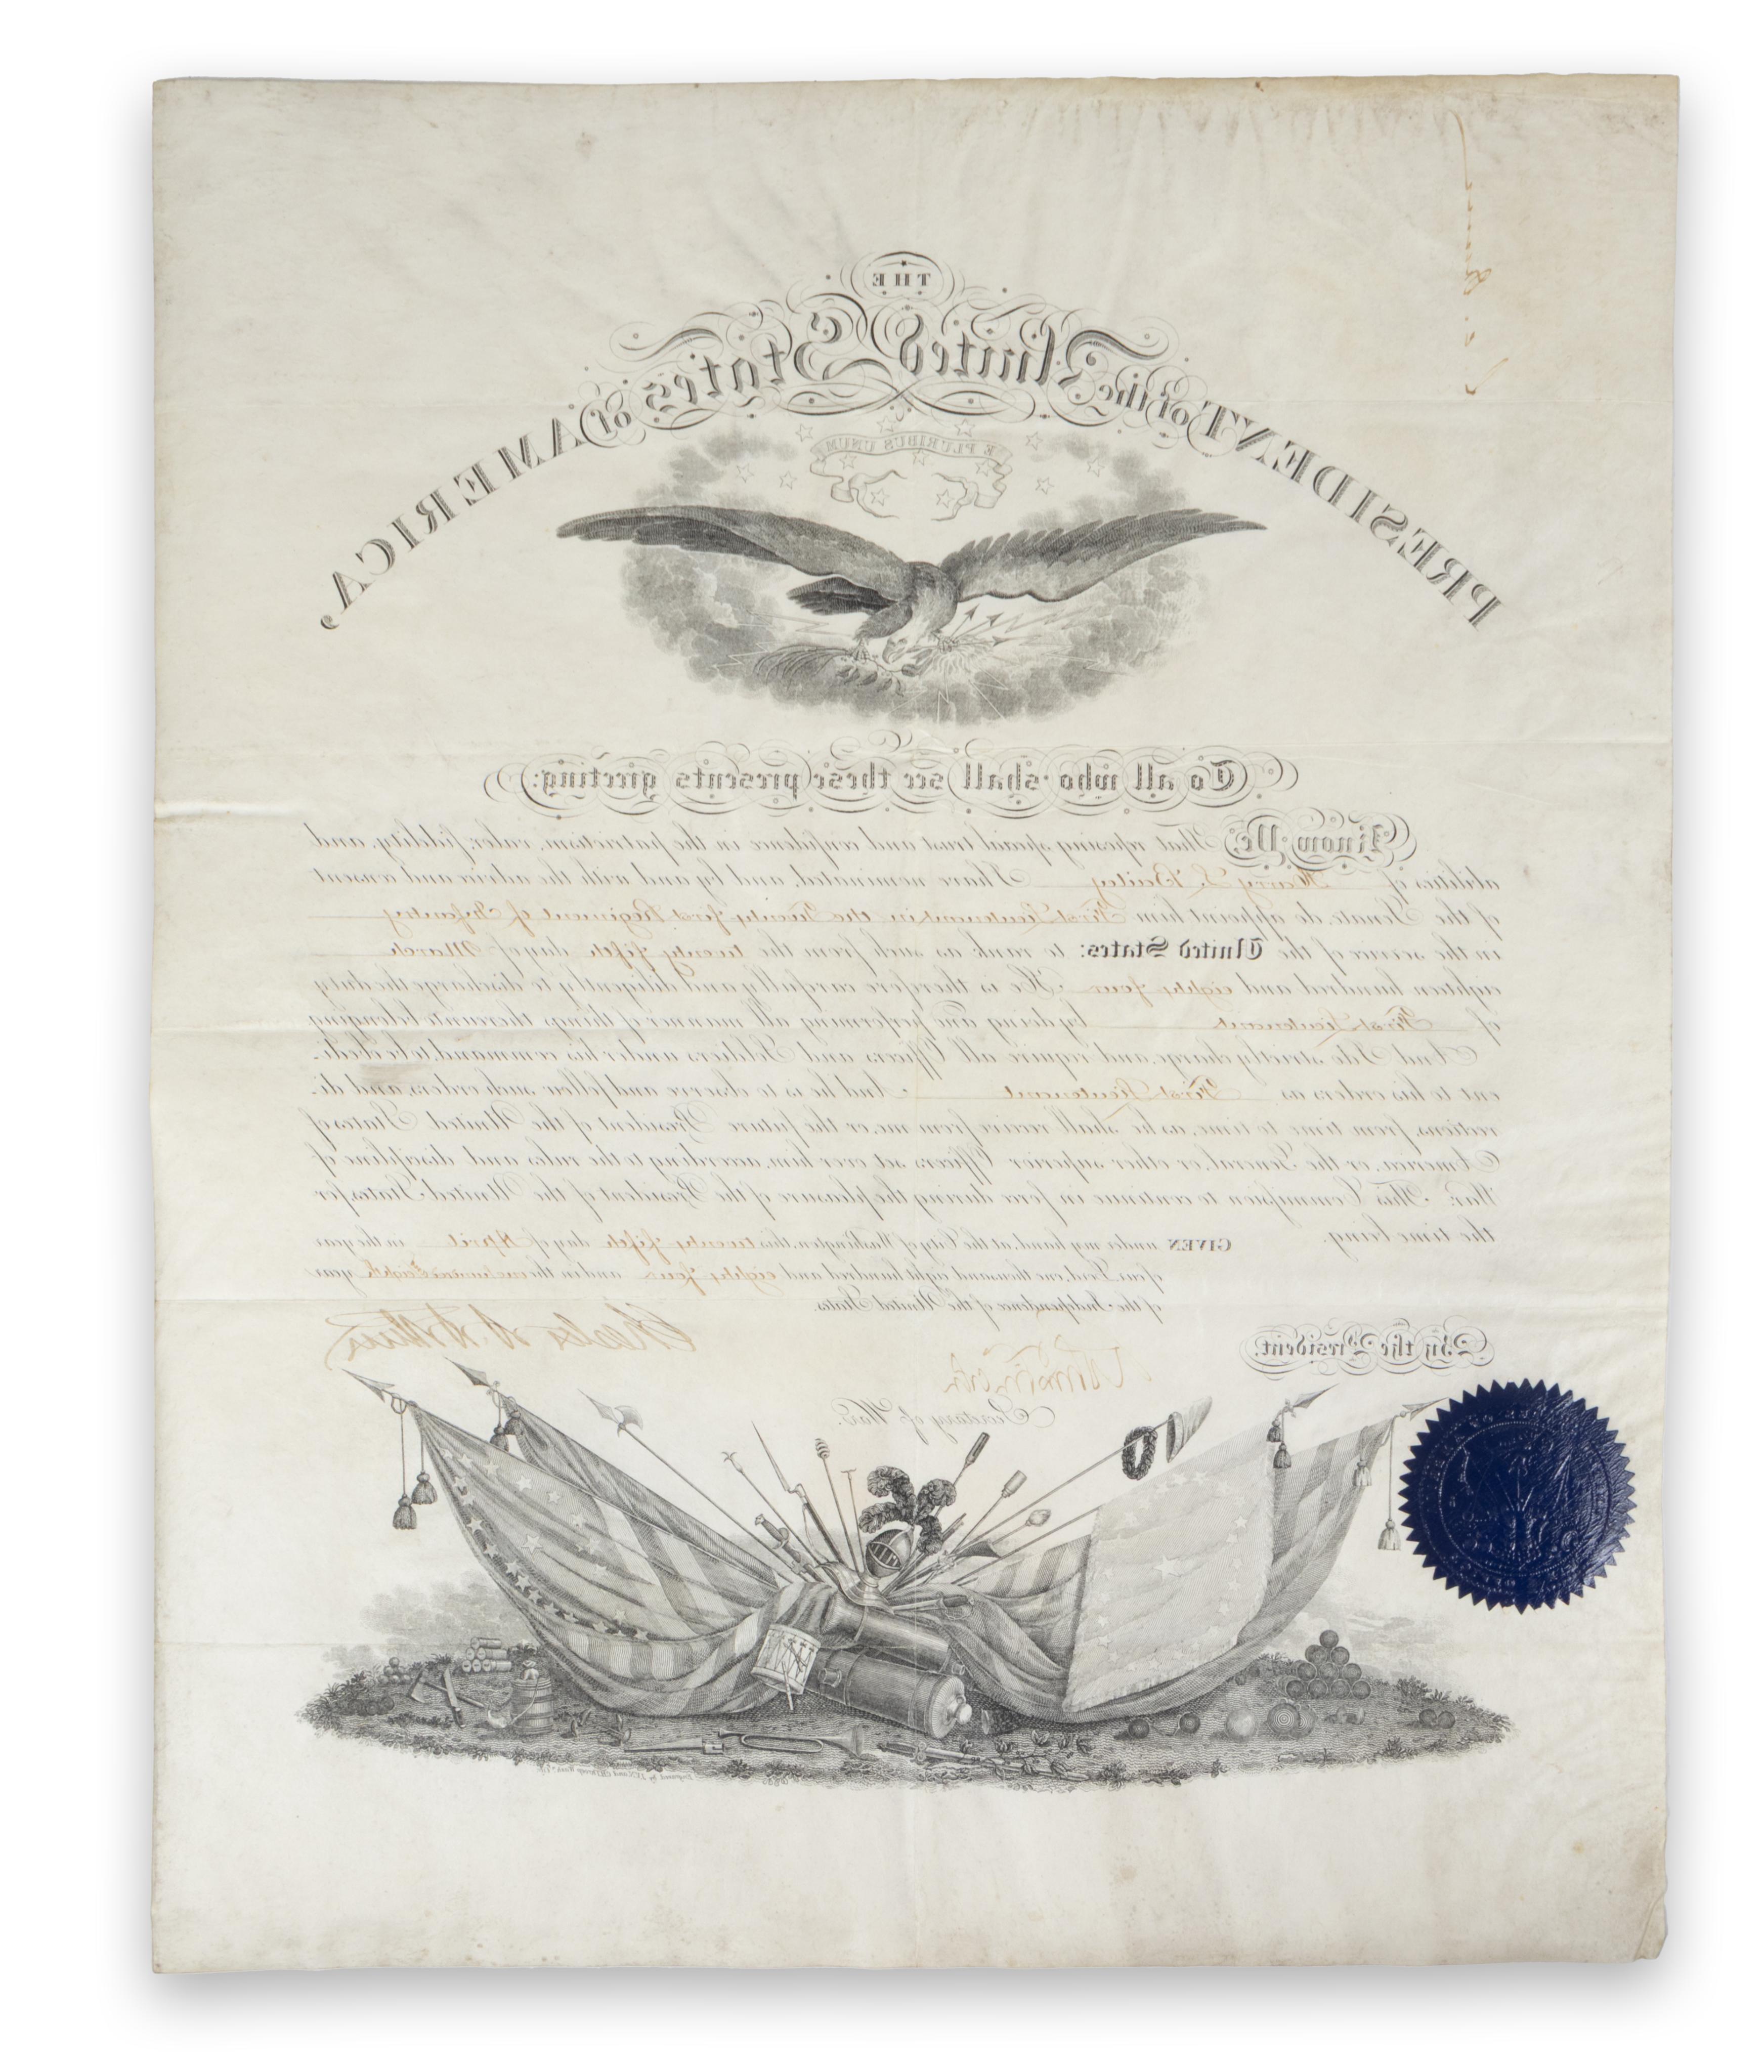 THE
PRESIDENT of the United States of AMERICA,
E PLURIBUS UNUM
To all who shall see these presents greeting:
Know Ye, That reposing special trust and confidence in the patriotism, valor, fidelity, and
abilities of Harry L. Bailey I have nominated, and by and with the advice and consent
of the Senate, do appoint him First Lieutenant in the Twenty first Regiment of Infantry
in the service of the United States: to rank as such from the twenty fifth day of March
eighteen hundred and eighty four. He is therefore carefully and diligently to discharge the duty
of First Lieutenant by doing and performing all manner of things thereunto belonging.
And I do strictly charge, and require all Officers and Soldiers under his command, to be obedi-
ent to his orders as First Lieutenant. And he is to observe and follow such orders, and di-
rections, from time to time, as he shall receive from me, or the future President of the United States of
America, or the General, or other superior Officers set over him, according to the rules and discipline of
War. This Commission to continue in force during the pleasure of the President of the United States, for
the time being.
GIVEN under my hand, at the City of Washington, this twenty fifth day of April in the year
of our Lord, one thousand eight hundred and eighty four and in the one hundred & eighth year
of the Independence of the United States.
Chester A. Arthur
By the President.
Secretary of War.